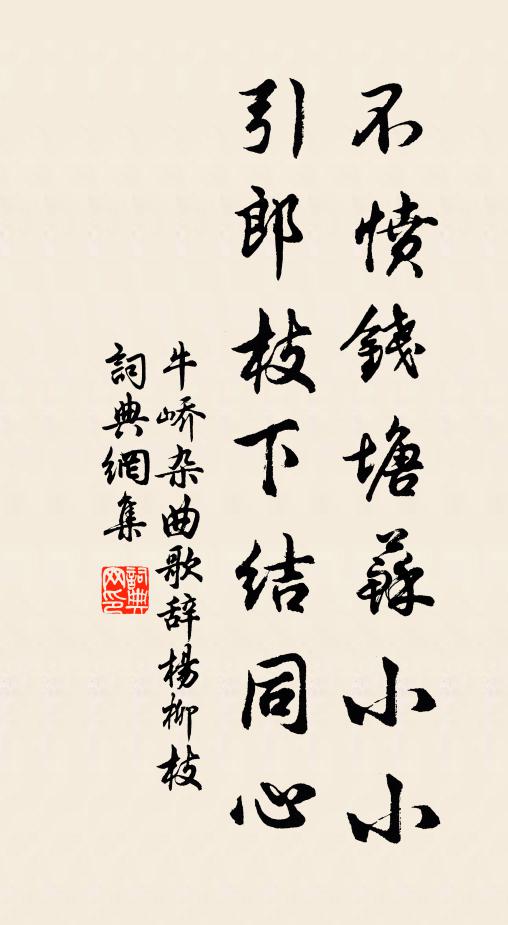 不憤錢塘蘇小小
引郎枝下結同心
牛峤杂曲歌辞楊柳枝
詞典網集
詞典網印